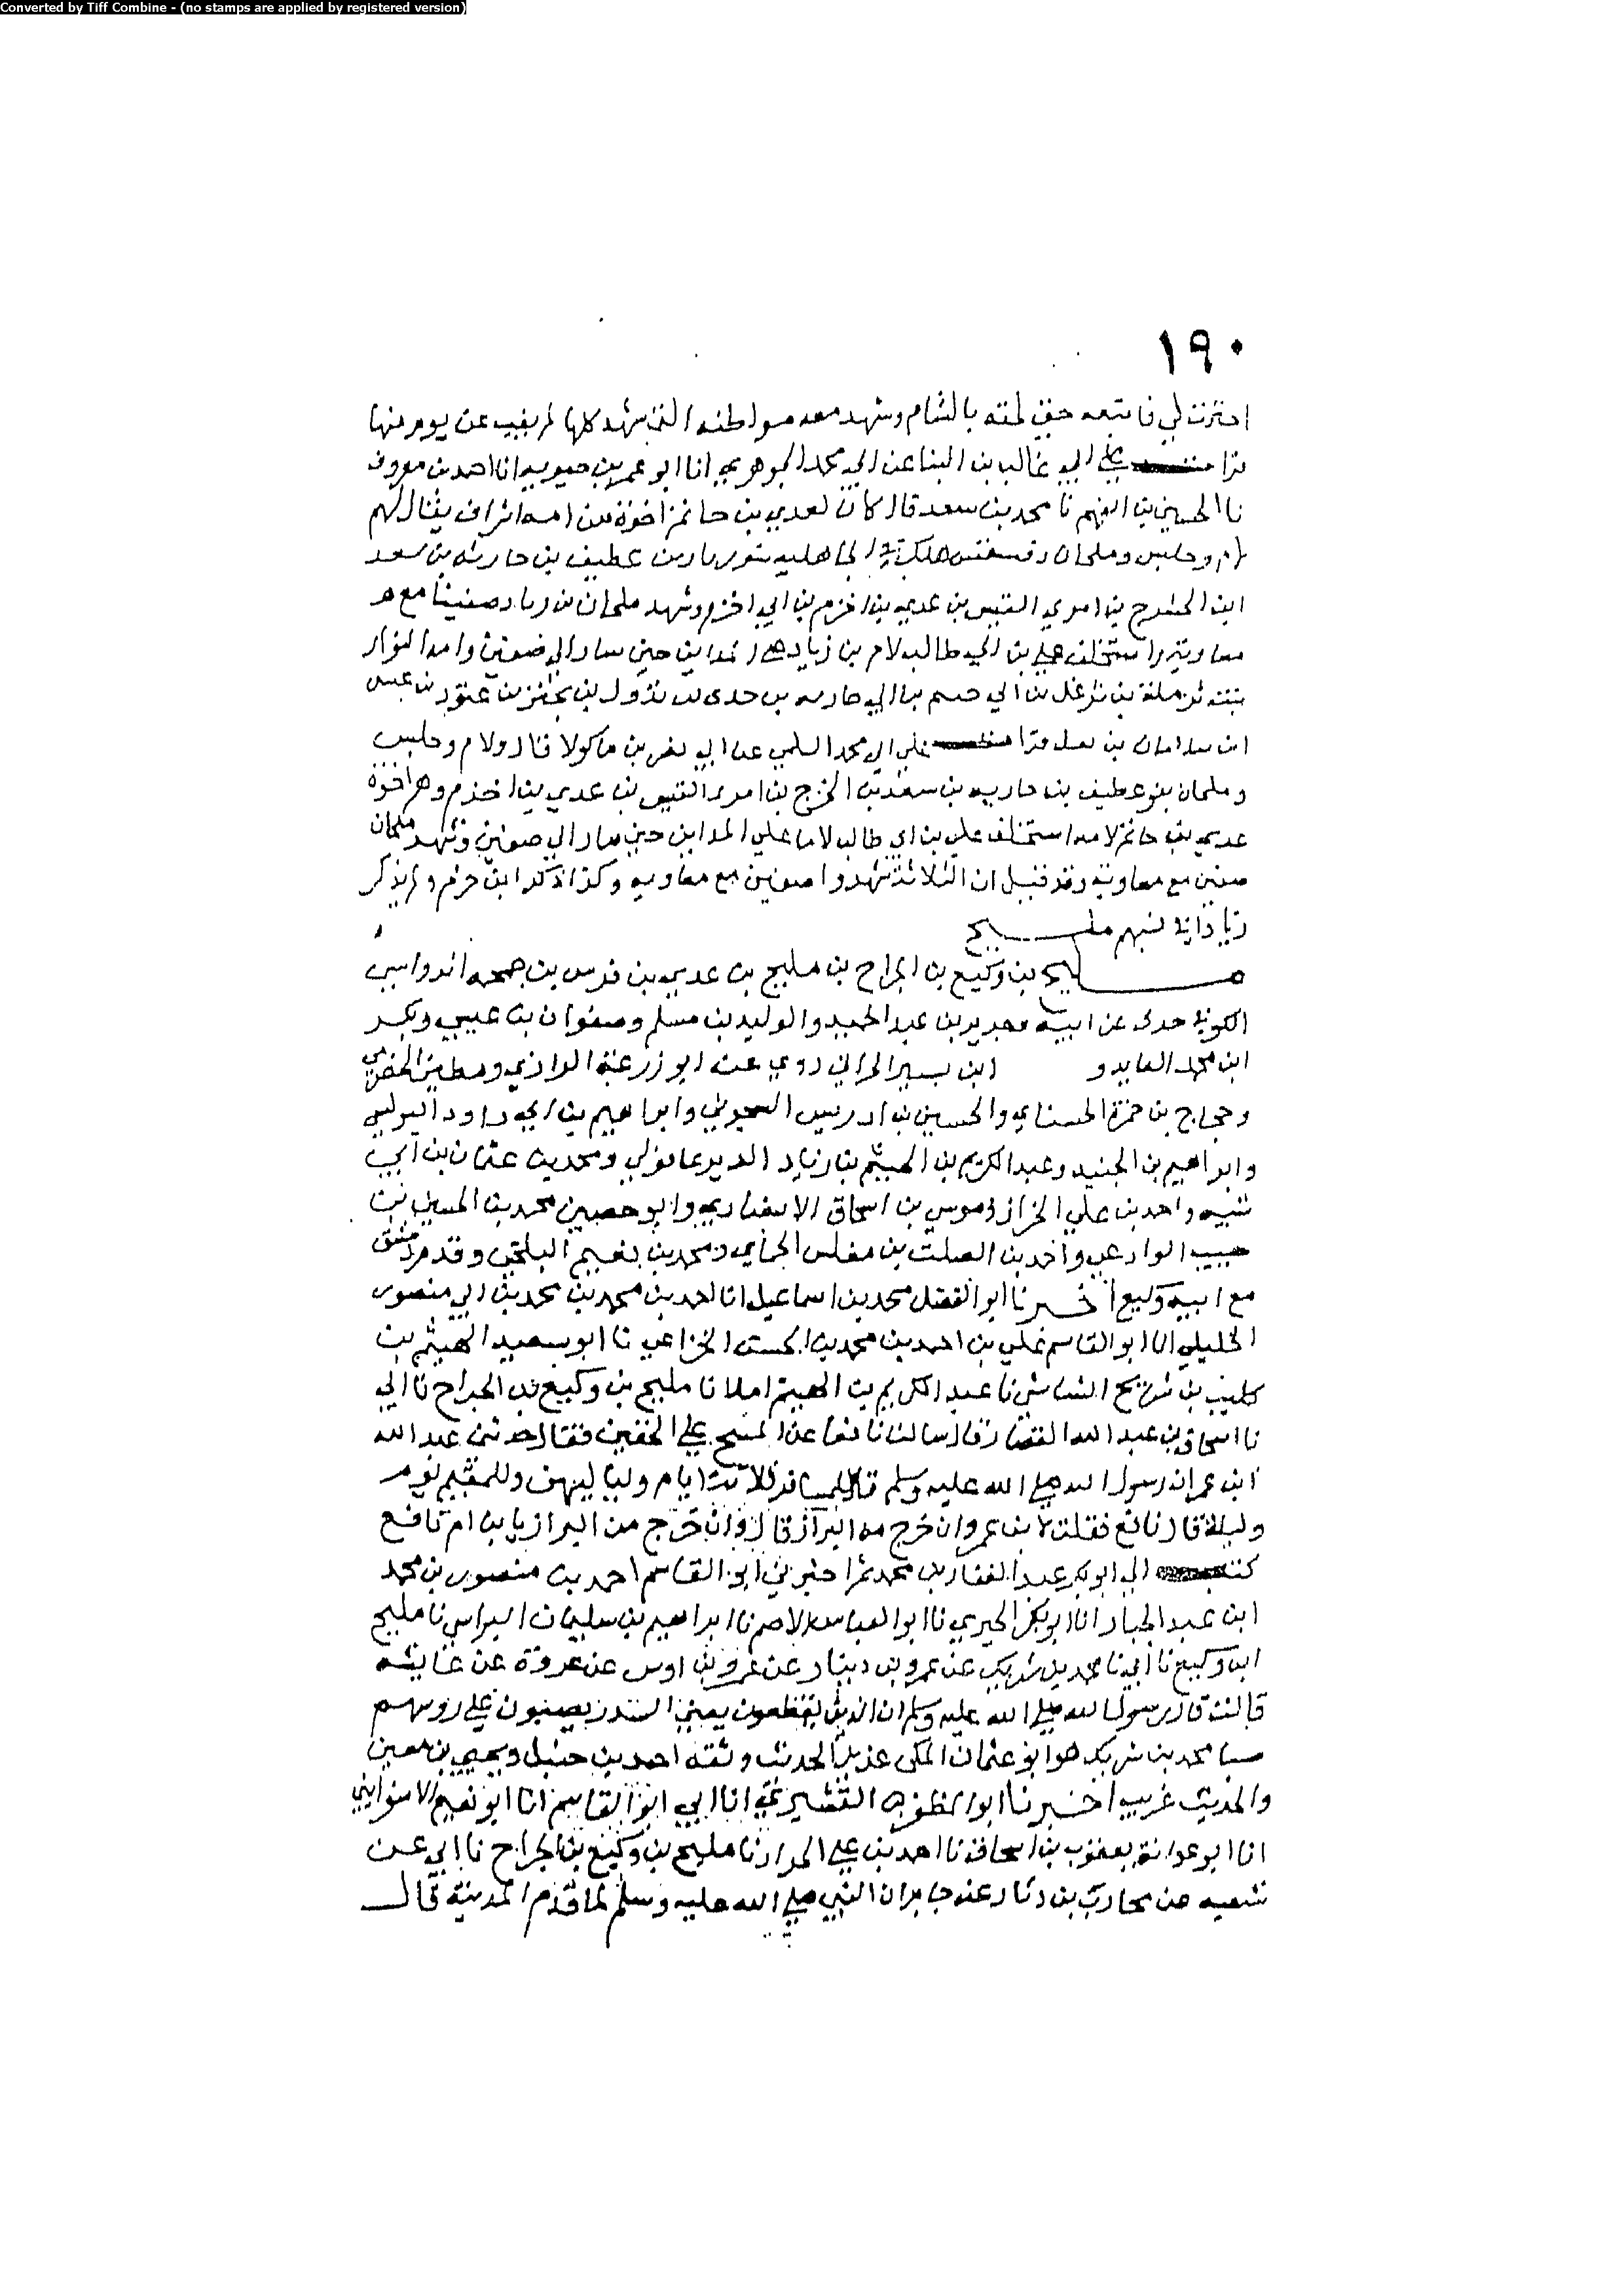 Converted by Tiff Combine - (no stamps are applied by registered version)
١٩٠
اخترت لي فاتبعه حتى لحقه بالشام وشهد معه مواطنه التي شهد كلها لم يغيب عن يوم منها
قرا على ابي غالب بن البنا عن ابي محمد الجوهري انا ابو عمر بن حيويه انا احمد بن معروف
نا الحسين بن الفهم نا محمد بن سعد قال كان لعدي بن حاتم اخوة من امه اشراف يقال لهم
لام وحلبس وملحان الجاهلية بنو بن غطيف بن حارثه بن سعد
ابن الحشرج بن امري القيس بن عدي بن اخزم بن ابي اخزم وشهد ملحان بن زياد صفين مع
معاوية واستخلف علي بن ابي طالب لام بن زياد على المداين حين سار الى صفين وامه النوار
بنت ثرملة بن ترغل بن ابي بن ابي حارثه بن جدى بن تدول بن بحتر بن عتود بن
ابن سلامان بن ثعل قرا على ابي محمد السلمي عن ابي نصر بن ماكولا قال ولام وحلبس
وملحان بنو غطيف بن حارثه بن سعد بن الحشرج بن امرى القيس بن عدي بن اخزم وهم اخوة
عدي بن حاتم لامه استخلف علي بن ابي طالب لاما علي المداين حين سار الي صفين وشهد ملحان
صفين مع معاوية وقد قيل ان الثلاثة شهدوا صفين مع معاويه وكذا ذكر ابن حزم ولم يذكر
زيادا في نسبهم مليح
مليح بن وكيع بن الجراح بن مليح بن عدي بن فرس بن جمجمه الرواسي
الكوفي حدث عن ابيه وجرير بن عبد الحميد والوليد بن مسلم وصفوان بن عيسى وبكر
ابن محمد العابد و ابن بشير الحراني روى عنه ابو زرعة الرازي ومطين الحضرمي
وحجاج بن حمزة والحسين بن ادريس وابراهيم بن ابي داود البرلسي
وابراهيم بن الجنيد وعبد الكريم بن الهيثم بن زياد الديرعاقولي ومحمد بن عثمان بن ابي
شيبه واحمد بن علي الخزاز وموسى بن اسحاق الانصاري وابو حصين محمد بن الحسين بن
حبيب الوادعي واحمد بن الصلت بن مغلس الحماني ومحمد بن نعيم البلخي وقدم دمشق
مع ابيه وكيع اخبرنا ابو الفضل محمد بن اسماعيل انا احمد بن محمد بن محمد بن ابي منصور
الخليلي انا ابو القاسم علي بن احمد بن محمد بن الحسن الخزاعي نا ابو سعيد الهيثم بن
كليب بن شريح الشاشي نا عبد الكريم بن الهيثم املا نا مليح بن وكيع بن الجراح نا ابي
نا اسحاق بن عبد الله القصار قال سالنا نافعا عن المسح على الخفين فقال حدثني عبد الله
ابن عمر ان رسول الله صلى الله عليه وسلم قال للمسافر ثلاثة ايام ولياليهن وللمقيم يوم
وليلة قال نافع فقلت لابن عمر وان خرج من البراز قال وان خرج من البراز يا بن ام نافع
كتب الي ابو بكر عبد الغفار بن محمد ثم اخبرني ابو القاسم احمد بن منصور بن محمد
ابن عبد الجبار انا ابو بكر الحيري نا ابو العباس الاصم نا ابراهيم بن سليمان البرلسي نا مليح
ابن وكيع نا ابي نا محمد بن شريك عن عمرو بن دينار عن عمرو بن اوس عن عروة عن عايشه
قالت قال رسول الله صلى الله عليه وسلم ان الذين يقطعون يعني السدر يصبون على روسهم
صبا محمد بن شريك هو ابو عثمان المكي عزيز الحديث وثقه احمد بن حنبل ويحيى بن معين
والحديث غريب اخبرنا ابو المظفر بن القشيري انا ابي ابو القاسم انا ابو نعيم الاسفرايني
انا ابو عوانة يعقوب بن اسحاق نا احمد بن علي الخراز نا مليح بن وكيع بن الجراح نا ابي عن
شعبه عن محارب بن دثار عن جابر ان النبي صلى الله عليه وسلم لما قدم المدينة قال